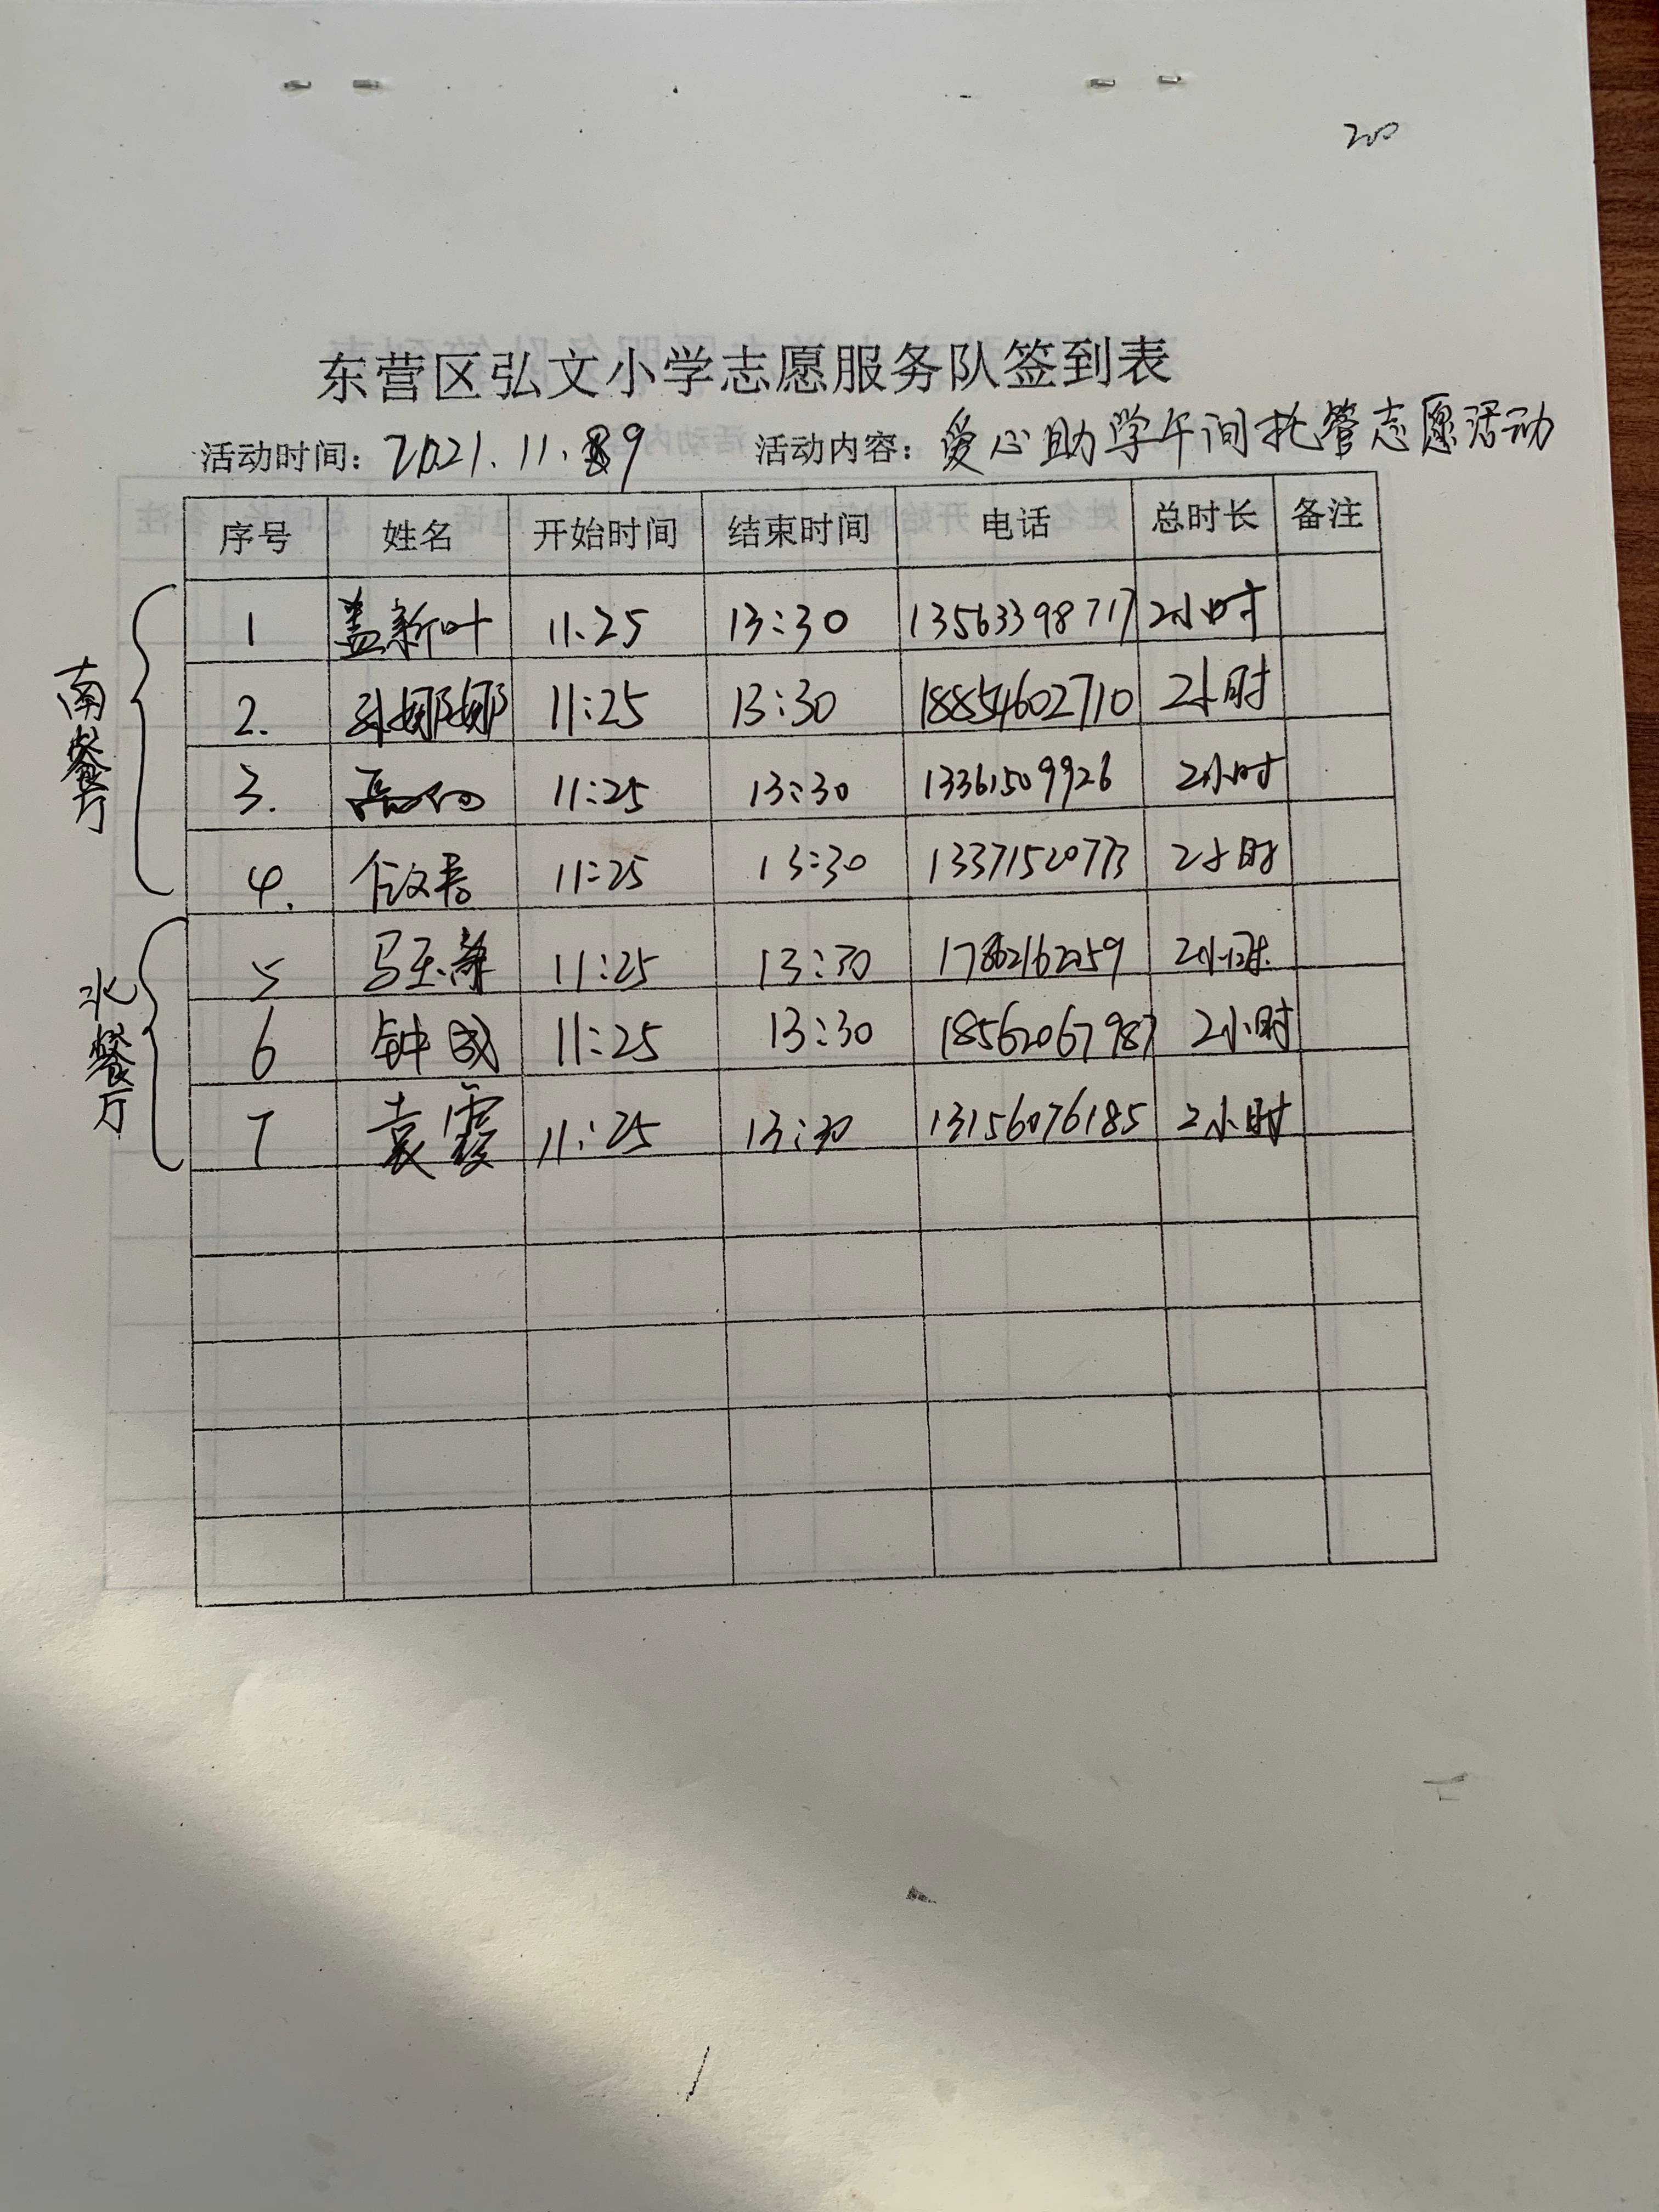 200
东营区弘文小学志愿服务队签到表
活动时间：2021.11.9 活动内容：爱心助学午间托管志愿活动
序号 姓名 开始时间 结束时间 电话 总时长 备注
南餐厅
1 盖新叶 11:25 13:30 13563398717 2小时
2. 孙娜娜 11:25 13:30 18854602710 2小时
3. 11:25 13:30 13361509926 2小时
4. 11:25 13:30 13371520773 2小时
北餐厅
5 马玉 11:25 13:30 2小时
6 钟成 11:25 13:30 18562067987 2小时
7 袁霞 11:25 13:30 13156076185 2小时